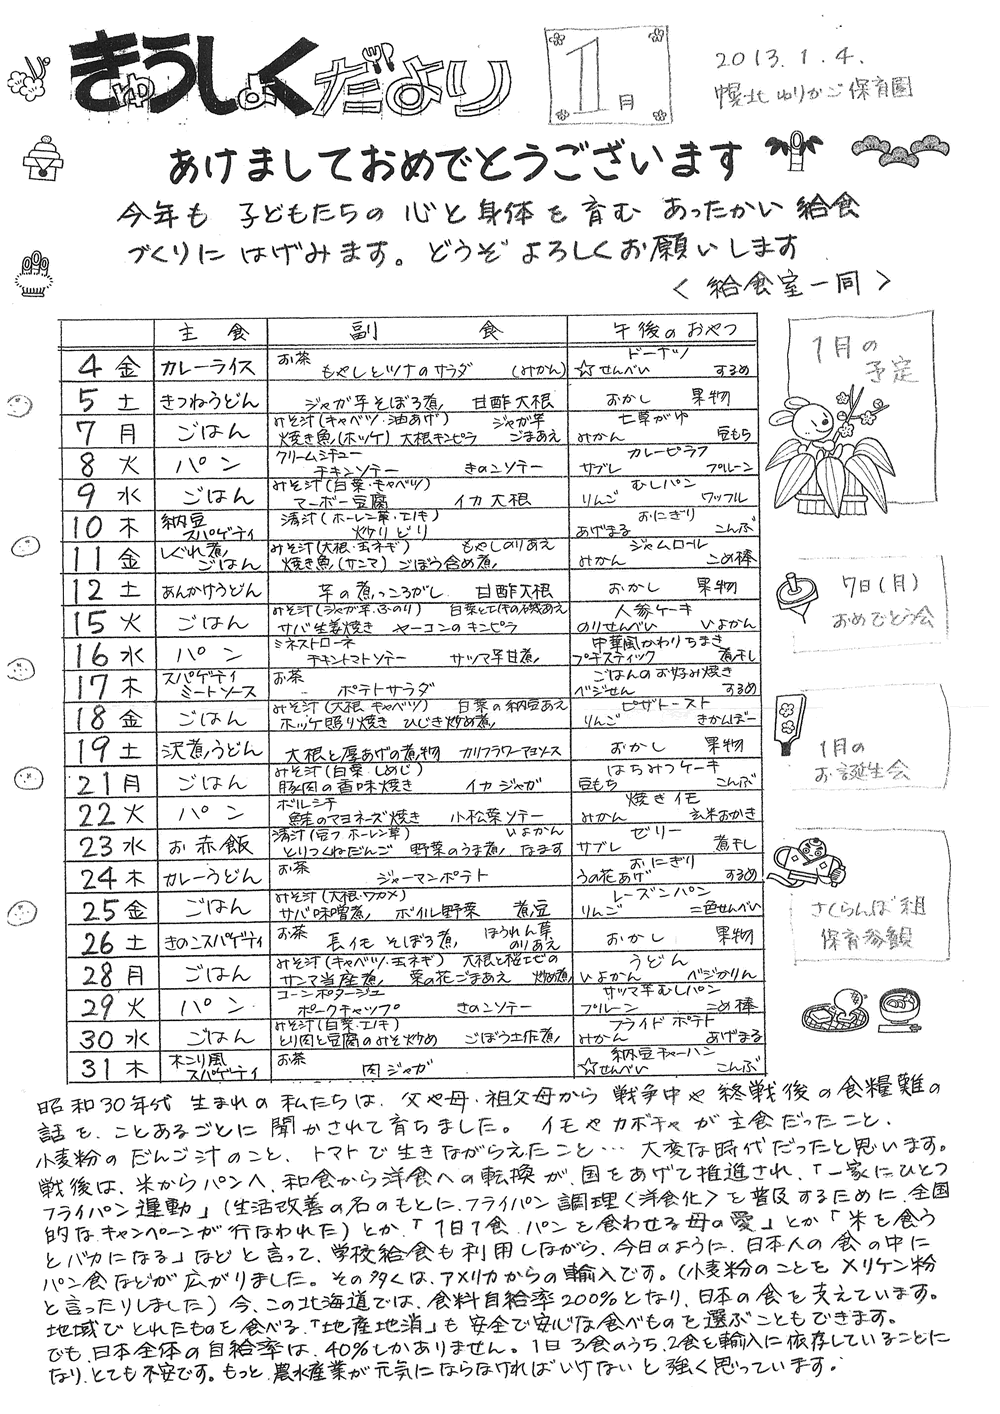 きゅうしょくだより
1月
2013.1.4.
幌北ゆりかご保育園
あけましておめでとうございます
今年も 子どもたちの 心と身体を 育む あったかい 給食
づくりに はげみます。どうぞ よろしくお願いします
〈 給食室一同 〉
主食 副食 午後のおやつ
4 金 カレーライス お茶 もやしとツナのサラダ (みかん) ドーナツ ☆せんべい するめ
5 土 きつねうどん ジャガ芋そぼろ煮 甘酢大根 おかし 果物
7 月 ごはん みそ汁(キャベツ・油あげ) ジャガ芋 焼き魚(ホッケ) 大根キンピラ ごまあえ 七草がゆ みかん 豆もち
8 火 パン クリームシチュー チキンソテー きのこソテー カレーピラフ サブレ プルーン
9 水 ごはん みそ汁(白菜・キャベツ) マーボー豆腐 イカ大根 むしパン りんご ワッフル
10 木 納豆スパゲティ 清汁(ホーレン草・エノキ) 炒りどり おにぎり あげまる こんぶ
11 金 しぐれ煮ごはん みそ汁(大根・玉ネギ) もやしのりあえ 焼き魚(サンマ) ごぼう含め煮 ジャムロール みかん こめ棒
12 土 あんかけうどん 芋の煮っころがし 甘酢大根 おかし 果物
15 火 ごはん みそ汁(ジャガ芋・ふのり) 白菜とエノキの磯あえ サバ生姜焼き ヤーコンのキンピラ 人参ケーキ のりせんべい いよかん
16 水 パン ミネストローネ チキントマトソテー サツマ芋甘煮 中華風かわりちまき プチスティック 煮干し
17 木 スパゲティミートソース お茶 ポテトサラダ ごはんのお好み焼き ベジせん するめ
18 金 ごはん みそ汁(大根・キャベツ) 白菜の納豆あえ ホッケ照り焼き ひじき炒め煮 ピザトースト りんご きかんぼー
19 土 沢煮うどん 大根と厚あげの煮物 カリフラワーマヨソース おかし 果物
21 月 ごはん みそ汁(白菜・しめじ) 豚肉の香味焼き イカジャガ はちみつケーキ 豆もち こんぶ
22 火 パン ボルシチ 鮭のマヨネーズ焼き 小松菜ソテー 焼きイモ みかん 玄米おかき
23 水 お赤飯 清汁(豆フ・ホーレン草) いよかん とりつくねだんご 野菜のうま煮 なます ゼリー サブレ 煮干し
24 木 カレーうどん お茶 ジャーマンポテト おにぎり うの花あげ するめ
25 金 ごはん みそ汁(大根・ワカメ) サバ味噌煮 ボイル野菜 煮豆 レーズンパン りんご 二色せんべい
26 土 きのこスパゲティ お茶 長イモそぼろ煮 ほうれん草のりあえ おかし 果物
28 月 ごはん みそ汁(キャベツ・玉ネギ) 大根と桜エビの炒め煮 サンマ当座煮 菜の花ごまあえ うどん いよかん ベジかりん
29 火 パン コーンポタージュ ポークチャップ きのこソテー サツマ芋むしパン プルーン こめ棒
30 水 ごはん みそ汁(白菜・エノキ) とり肉と豆腐のみそ炒め ごぼう土佐煮 フライドポテト みかん あげまる
31 木 木こり風スパゲティ お茶 肉ジャガ 納豆チャーハン ☆せんべい こんぶ
1月の予定
7日(月)
おめでとう会
1月の
お誕生会
さくらんぼ組
保育参観
昭和30年代 生まれの 私たちは、父や母・祖父母から 戦争中や 終戦後の 食糧難の
話を、ことあるごとに 聞かされて育ちました。 イモや カボチャ が 主食だったこと、
小麦粉の だんご汁のこと、トマト で 生きながらえたこと… 大変な時代だったと思います。
戦後は、米からパンへ、和食から洋食への転換が、国をあげて推進され、「一家にひとつ
フライパン運動」(生活改善の名のもとに、フライパン調理〈洋食化〉を普及するために、全国
的なキャンペーンが行なわれた)とか、「1日1食、パンを食わせる母の愛」とか「米を食う
とバカになる」などと言って、学校給食も利用しながら、今日のように、日本人の食の中に
パン食などが 広がりました。その多くは、アメリカからの輸入です。(小麦粉のことをメリケン粉
と言ったりしました) 今、この北海道では、食料自給率200%となり、日本の食を支えています。
地域でとれたものを食べる、「地産地消」も 安全で安心な食べものを選ぶこともできます。
でも、日本全体の自給率は、40%しかありません。1日3食のうち、2食を輸入に依存していることに
なり、とても不安です。もっと、農水産業が元気にならなければいけないと強く思っています。